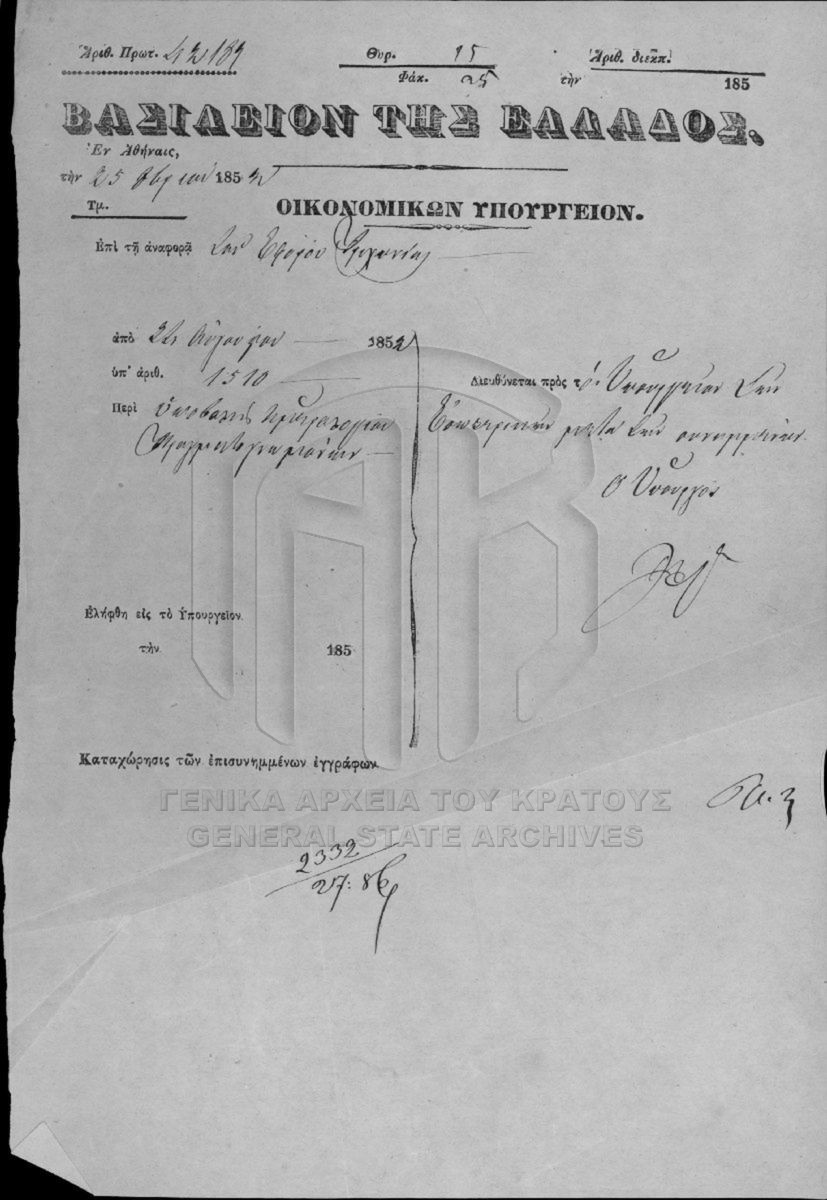 Ἀριθ. Πρωτ. 42189
Θυρ. 15
Φάκ. 25
Ἀριθ. διεκπ.
τὴν 185
ΒΑΣΙΛΕΙΟΝ ΤΗΣ ΕΛΛΑΔΟΣ.
Ἐν Ἀθήναις,
τὴν 25 8βρίου 1852
Τμ.
ΟΙΚΟΝΟΜΙΚΩΝ ΥΠΟΥΡΓΕΙΟΝ.
Ἐπὶ τῇ ἀναφορᾷ τοῦ Ἐφόρου
ἀπὸ Αὐγούστου 1852
ὑπ' ἀριθ. 1510
Περὶ ὑποβολῆς
Διευθύνεται πρὸς τὸ Ὑπουργεῖον τῶν
Ἐσωτερικῶν μετὰ τῶν συνημμένων
Ὁ Ὑπουργός
Ἐλήφθη εἰς τὸ Ὑπουργεῖον
τὴν 185
Καταχώρησις τῶν ἐπισυνημμένων ἐγγράφων
ΓΕΝΙΚΑ ΑΡΧΕΙΑ ΤΟΥ ΚΡΑΤΟΥΣ
GENERAL STATE ARCHIVES
2332
27: 8β